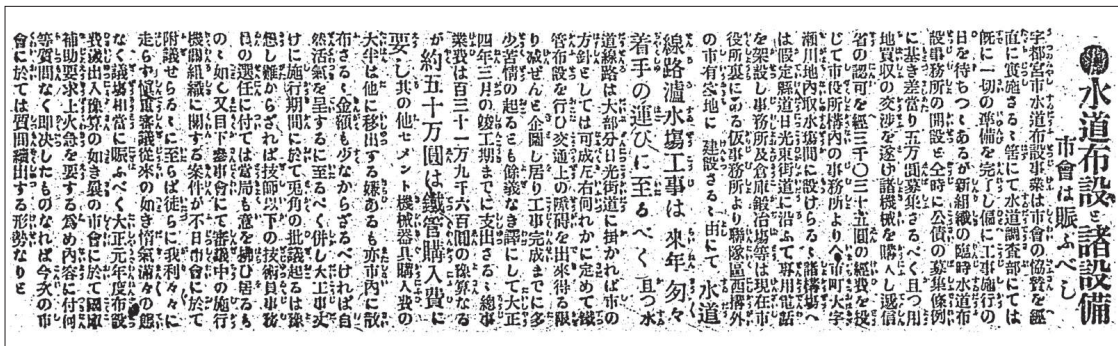 水道布設と諸設備
市會は賑ふべし
宇都宮市水道布設事業は市會の協賛を經
直に實施さるゝ筈にて水道調査部にては
既に一切の準備を完了し偏に工事施行の
日を待ちつゝあるが新組織の臨時水道布
設事務所の開設と仝時に公債の募集條例
に基き差當り五万圓募集さるべく且つ用
地買収の交渉を遂げ諸機械を購入し遞信
省の認可を經三千〇三十五圓の經費を投
じて市役所構内の事務所より今市町大字
瀬川地内取水塲間に設けらるゝ諸搆塲へ
は假定縣道日光東街道に沿ふて専用電話
を架設し事務所及倉庫鍛冶塲等は現在市
役所裏にある仮事務所より聯隊區西搆外
の市有空地に建設さるゝ由にて水道
線路瀘水塲工事は來年勿々
着手の運びに至るべく且つ水
道線路は大部分日光街道に掛かれば市の
方針としては可成左右何れかに定めて鐵
管布設を行ひ交通上の障碍を出來得る限
り減ぜんと企圖し居り工事完成までに多
少苦情の起るとも餘義なき譯にして大正
四年三月の竣工期までに支出さるゝ總事
業費は百三十一万九千六百圓の豫算なる
が約五十万圓は鐵管購入費に
要し其の他セメント機械器具購入費の
大半は他に移出する嫌あるも亦市内に散
布さるゝ金額も少なからざるべければ自
然活氣を呈するに至るべく併し大工事丈
けに施行期間に於て兎角の批議起るは豫
想し難からざれば技師以下の技術員事務
員の選任に付ては當局も意を拂ひ居るも
のゝ如し又目下參事會にて審議中の施行
機關組織に關する案件が不日市會に於て
附議せらるゝに至らば徒らに我利々々に
走らず愼重審議從來の如き惰氣滿々の態
なく議塲相當に賑ふべく大正元年度布設
費歳出入豫算の如き曩の市會に於て國庫
補助要求上火急を要する爲め内容に付何
等質問なく即決したものなれば今次の市
會に於ては質問續出する形勢なりと